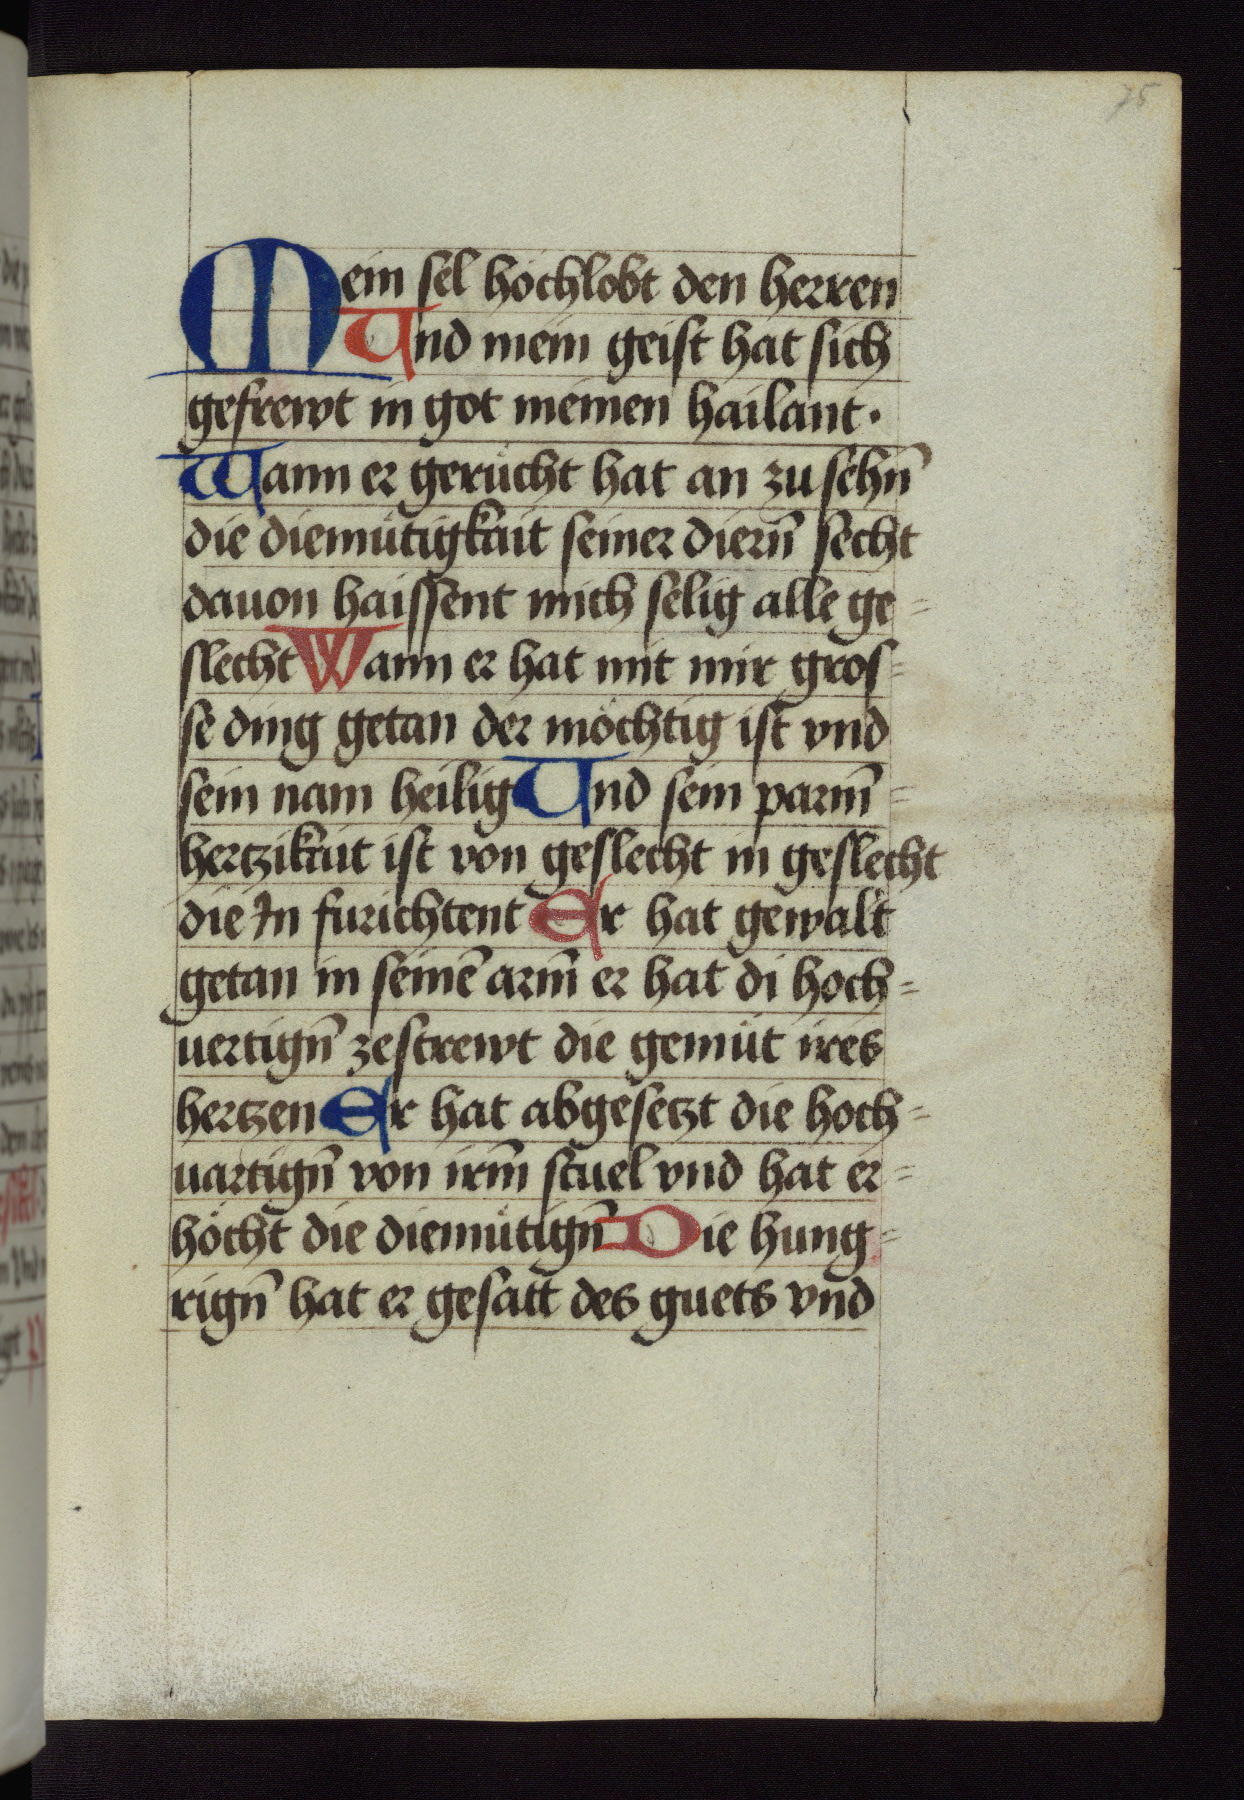 75
Mein sel höchlobt den herren
Und mein geist hat sich
gefrewt in got meinen hailant·
Wann er gerücht hat an zu sehn̄
die diemütigkait seiner diern̄ secht
dauon haissent mich selig alle ge=
slecht Wann er hat mit mir gros=
se ding getan der möchtig ist vnd
sein nam heilig Und sein parm̄=
hertzikait ist von geslecht in geslecht
die In furichtent Er hat gewalt
getan in seinē arm̄ er hat di hoch=
uertign̄ zestrewt die gemüt ires
hertzen Er hat abgesetzt die hoch=
uartign̄ von irm̄ stuel vnd hat er=
höcht die diemütign̄ Die hung=
rign̄ hat er gesatt des guets vnd